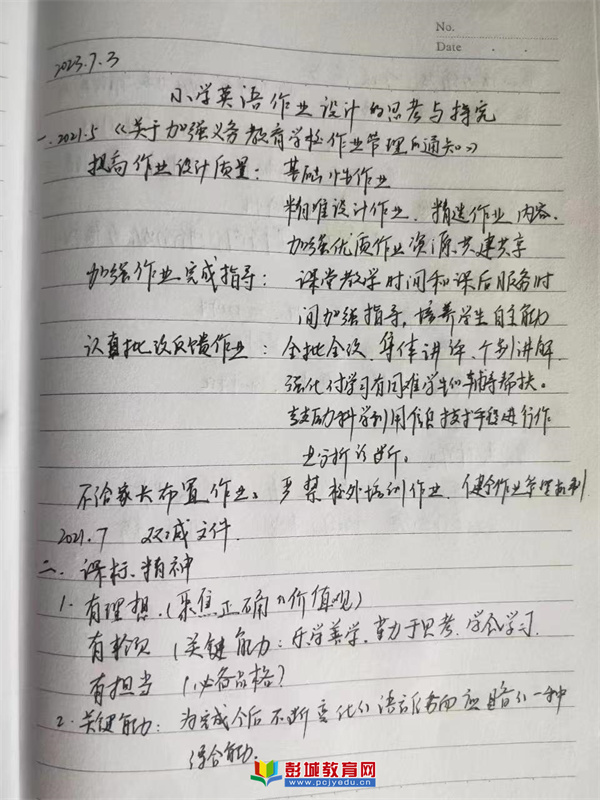 No.
Date
2023.7.3
小学英语作业设计的思考与探究
一、2021.5《关于加强义务教育学校作业管理的通知》
提高作业设计质量：基础性作业
精准设计作业、精选作业内容、
加强优质作业资源共建共享
加强作业完成指导：课堂教学时间和课后服务时
间加强指导，培养学生自主能力
认真批改反馈作业：全批全改、集体讲评、个别讲解
强化对学习有困难学生的辅导帮扶。
鼓励科学利用信息技术手段进行作
业分析诊断。
不给家长布置作业、严禁校外培训作业、健全作业管理机制
2021.7 双减文件
二、课标精神
1.有理想（聚焦正确的价值观）
有本领（关键能力：乐学善学，勤于思考，学会学习
有担当（必备品格）
2.关键能力：为完成今后不断变化的语言任务而应具备的一种
综合能力.
彭城教育网
www.pcjyedu.cn